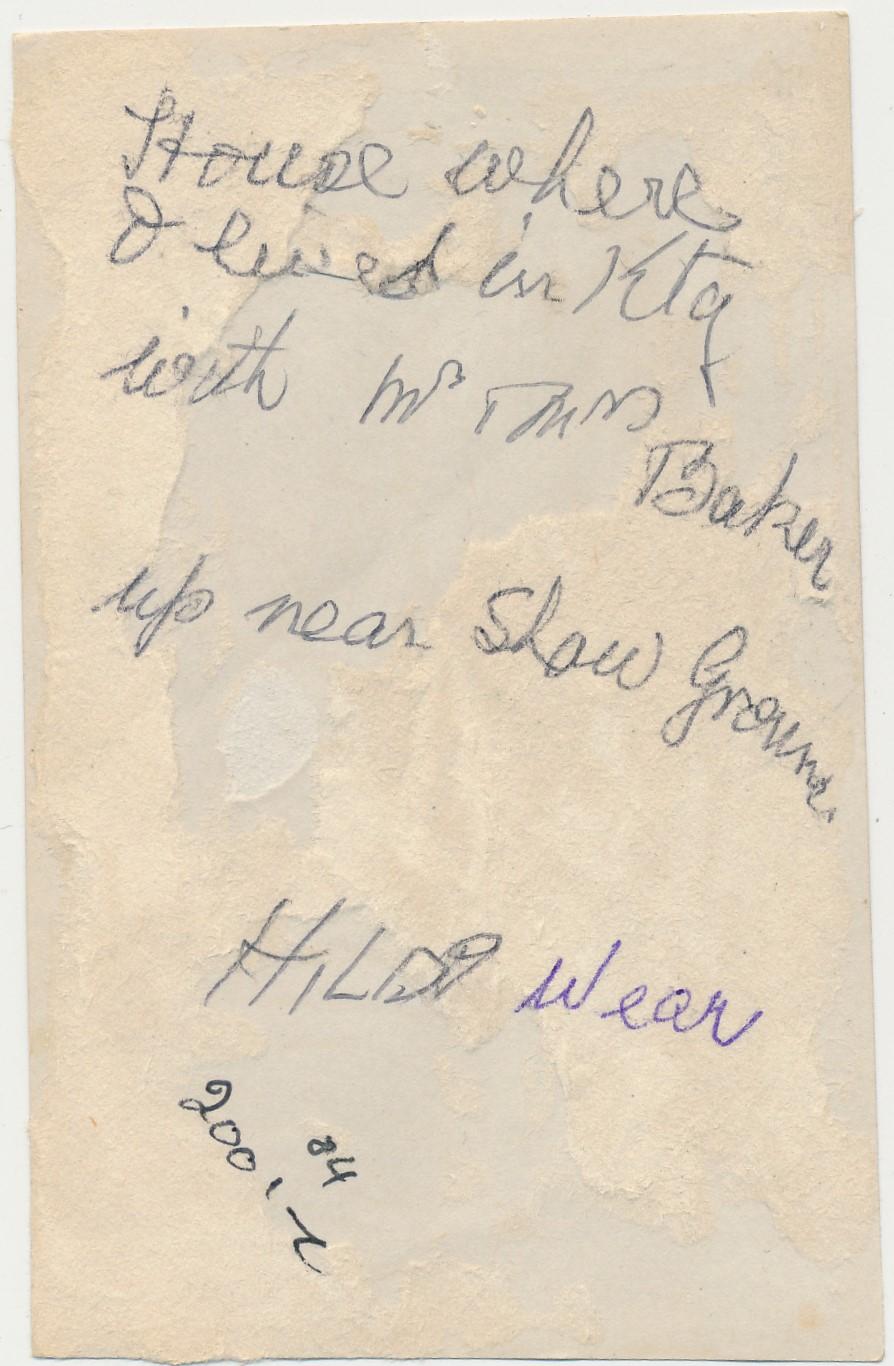 House where
I lived in Ktg
with Mr & Mrs
Baker
up near Show Ground
HILDA Wear
200
84